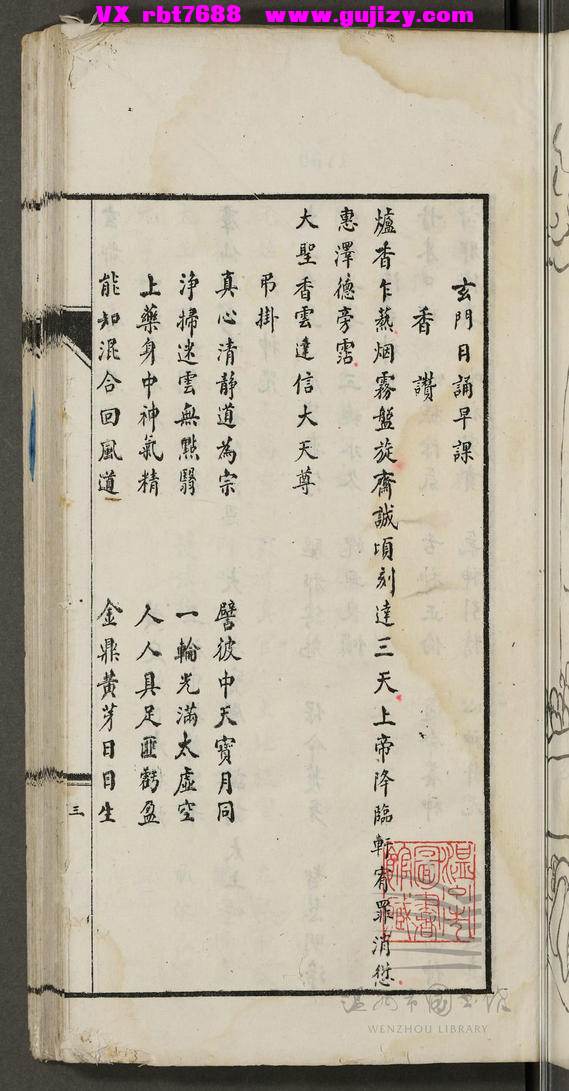 VX rbt7688 www.gujizy.com
玄門日誦早課
香讚
爐香乍爇烟霧盤旋齋誠頃刻達三天上帝降臨軒宥罪消愆
惠澤德旁霑
大聖香雲達信大天尊
吊掛
真心清静道為宗 譬彼中天寳月同
淨掃迷雲無點翳 一輪光滿太虛空
上藥身中神氣精 人人具足匪虧盈
能知混合回風道 金鼎黄芽日日生
三
溫州市圖書館藏
温州市图书馆
WENZHOU LIBRARY